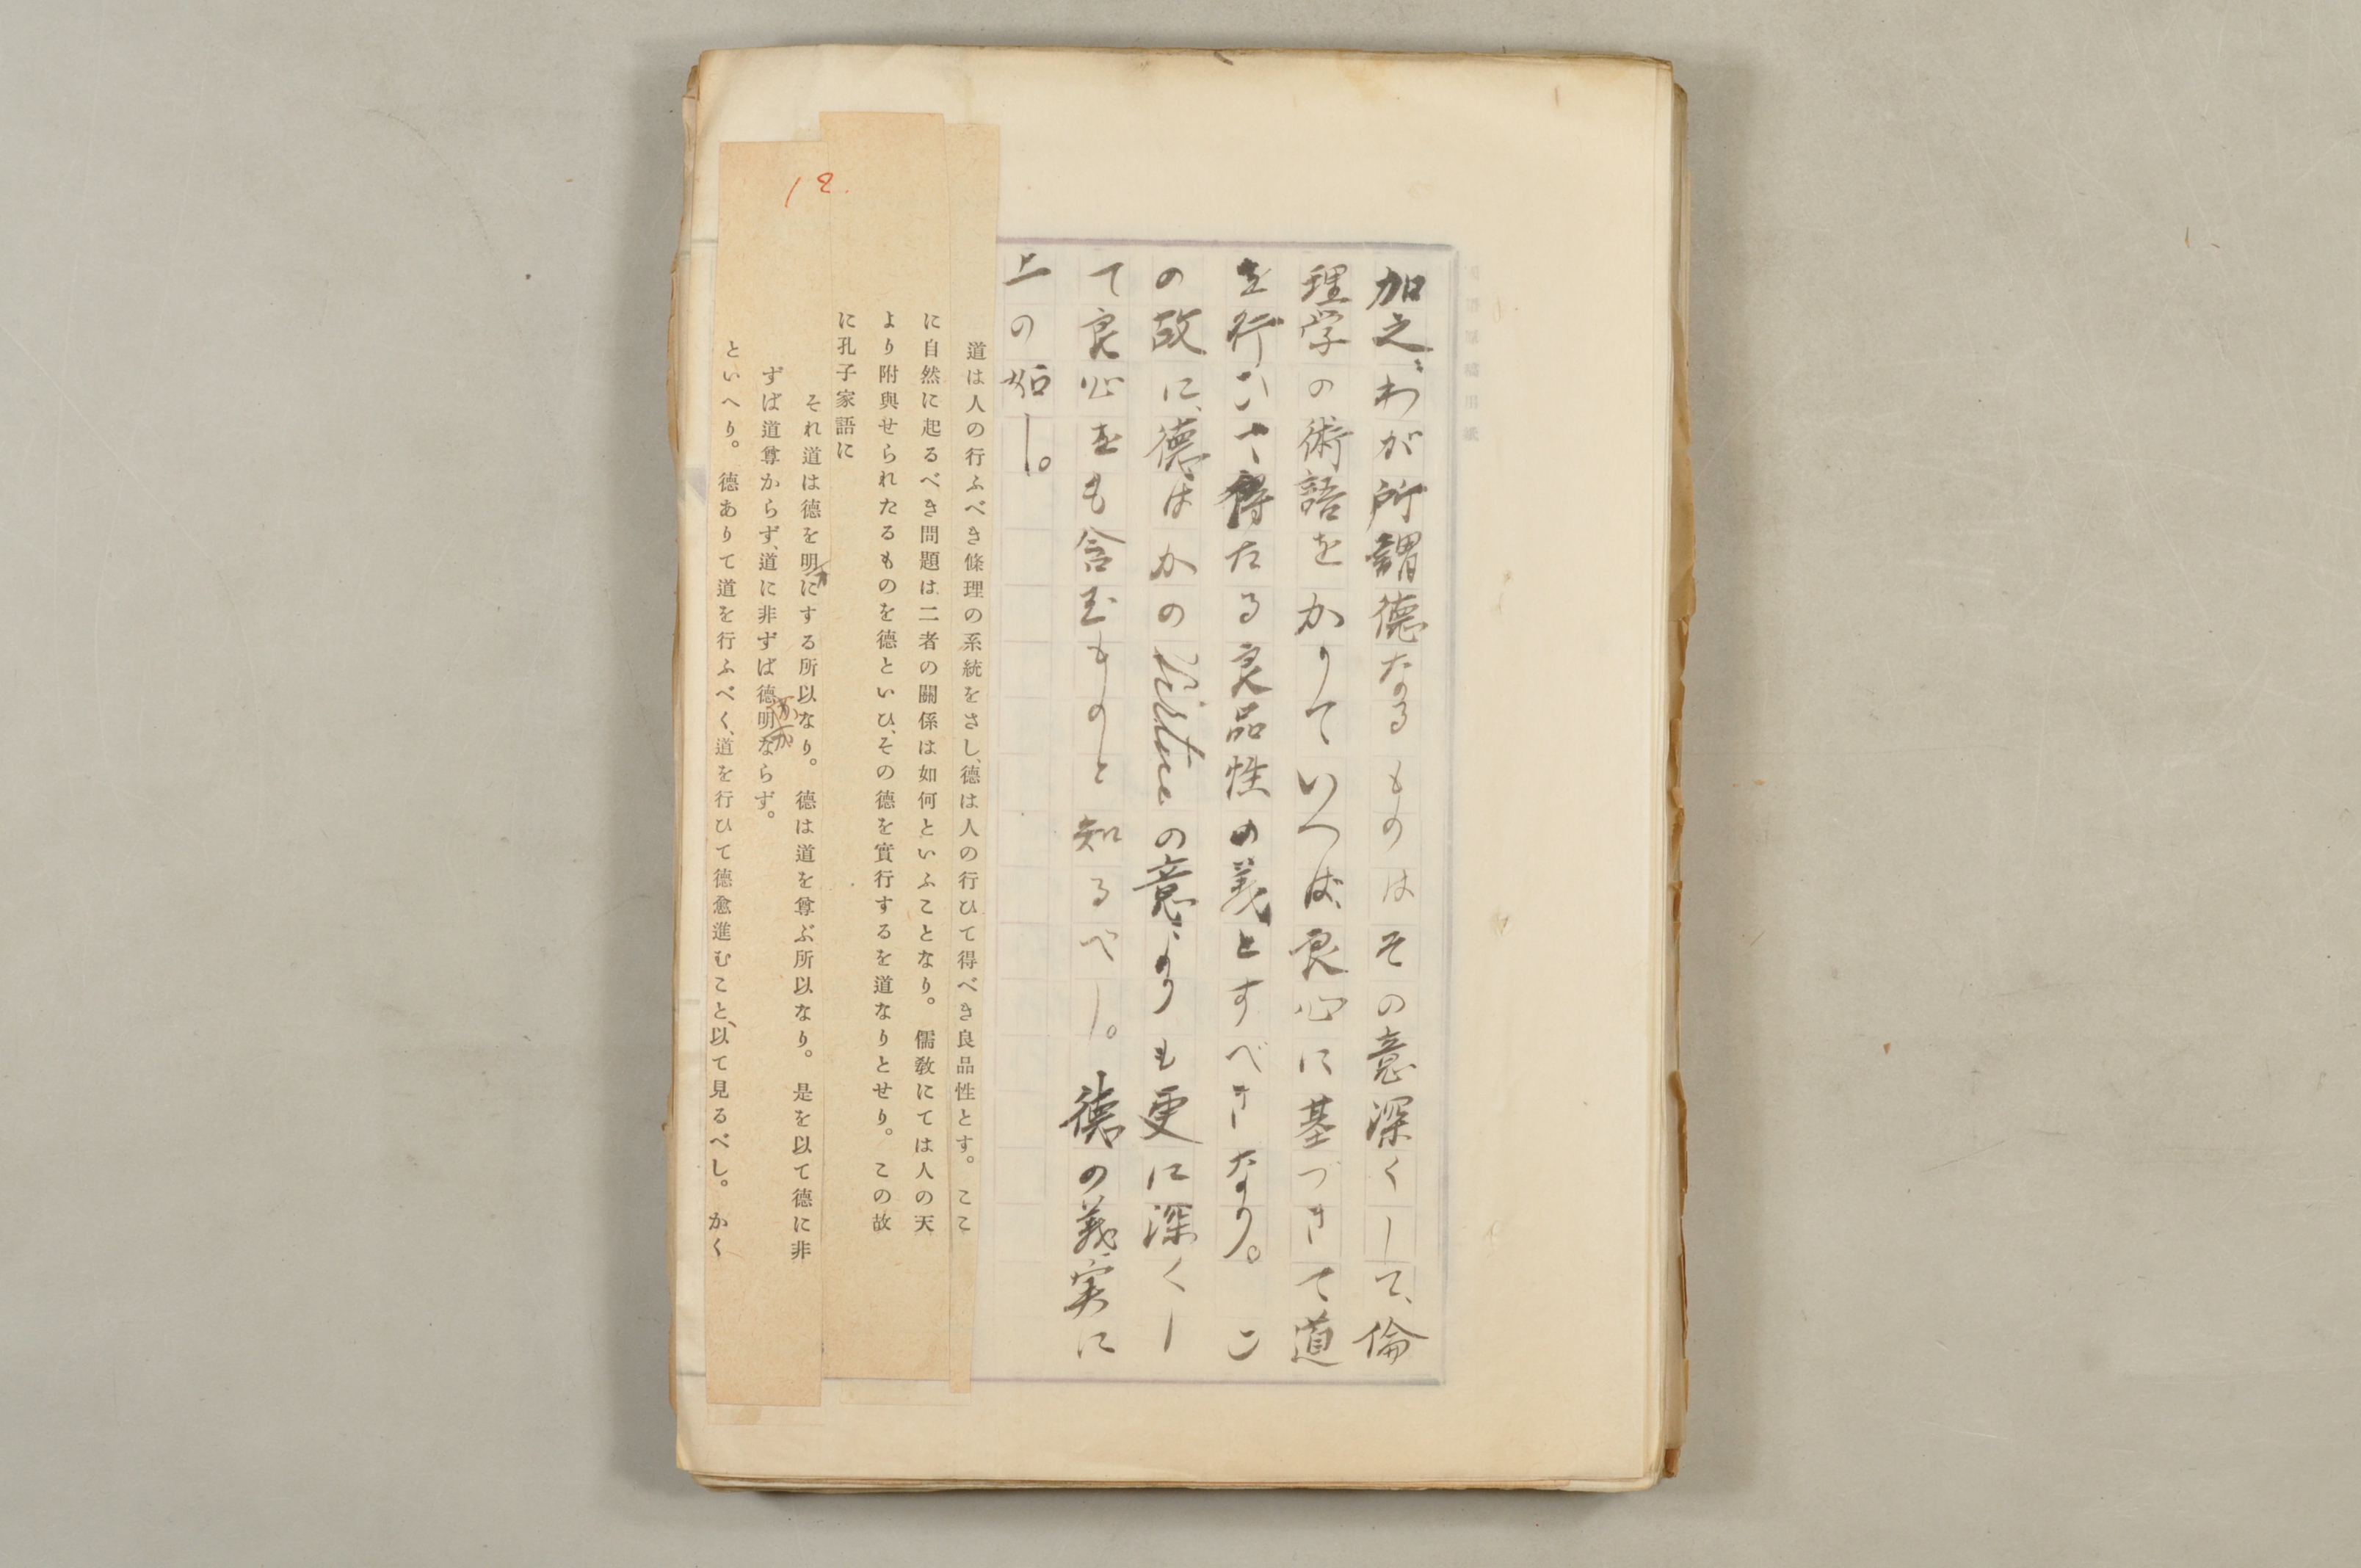 加之、わが所謂德なるものはその意深くして、倫
理学の術語をかりていへば、良心に基づきて道
を行ひて得たる良品性の義とすべきなり。こ
の故に、德はかのVirtueの意よりも更に深くし
て良心をも含むものと知るべし。德の義実に
上の如し。
道は人の行ふべき條理の系統をさし、德は人の行ひて得べき良品性とす。ここ
に自然に起るべき問題は二者の關係は如何といふことなり。儒敎にては人の天
より附與せられたるものを德といひ、その德を實行するを道なりとせり。この故
に孔子家語に
それ道は德を明にする所以なり。德は道を尊ぶ所以なり。是を以て德に非
ずば道尊からず、道に非ずば德明ならず。
といへり。德ありて道を行ふべく、道を行ひて德愈進むこと、以て見るべし。かく
12.